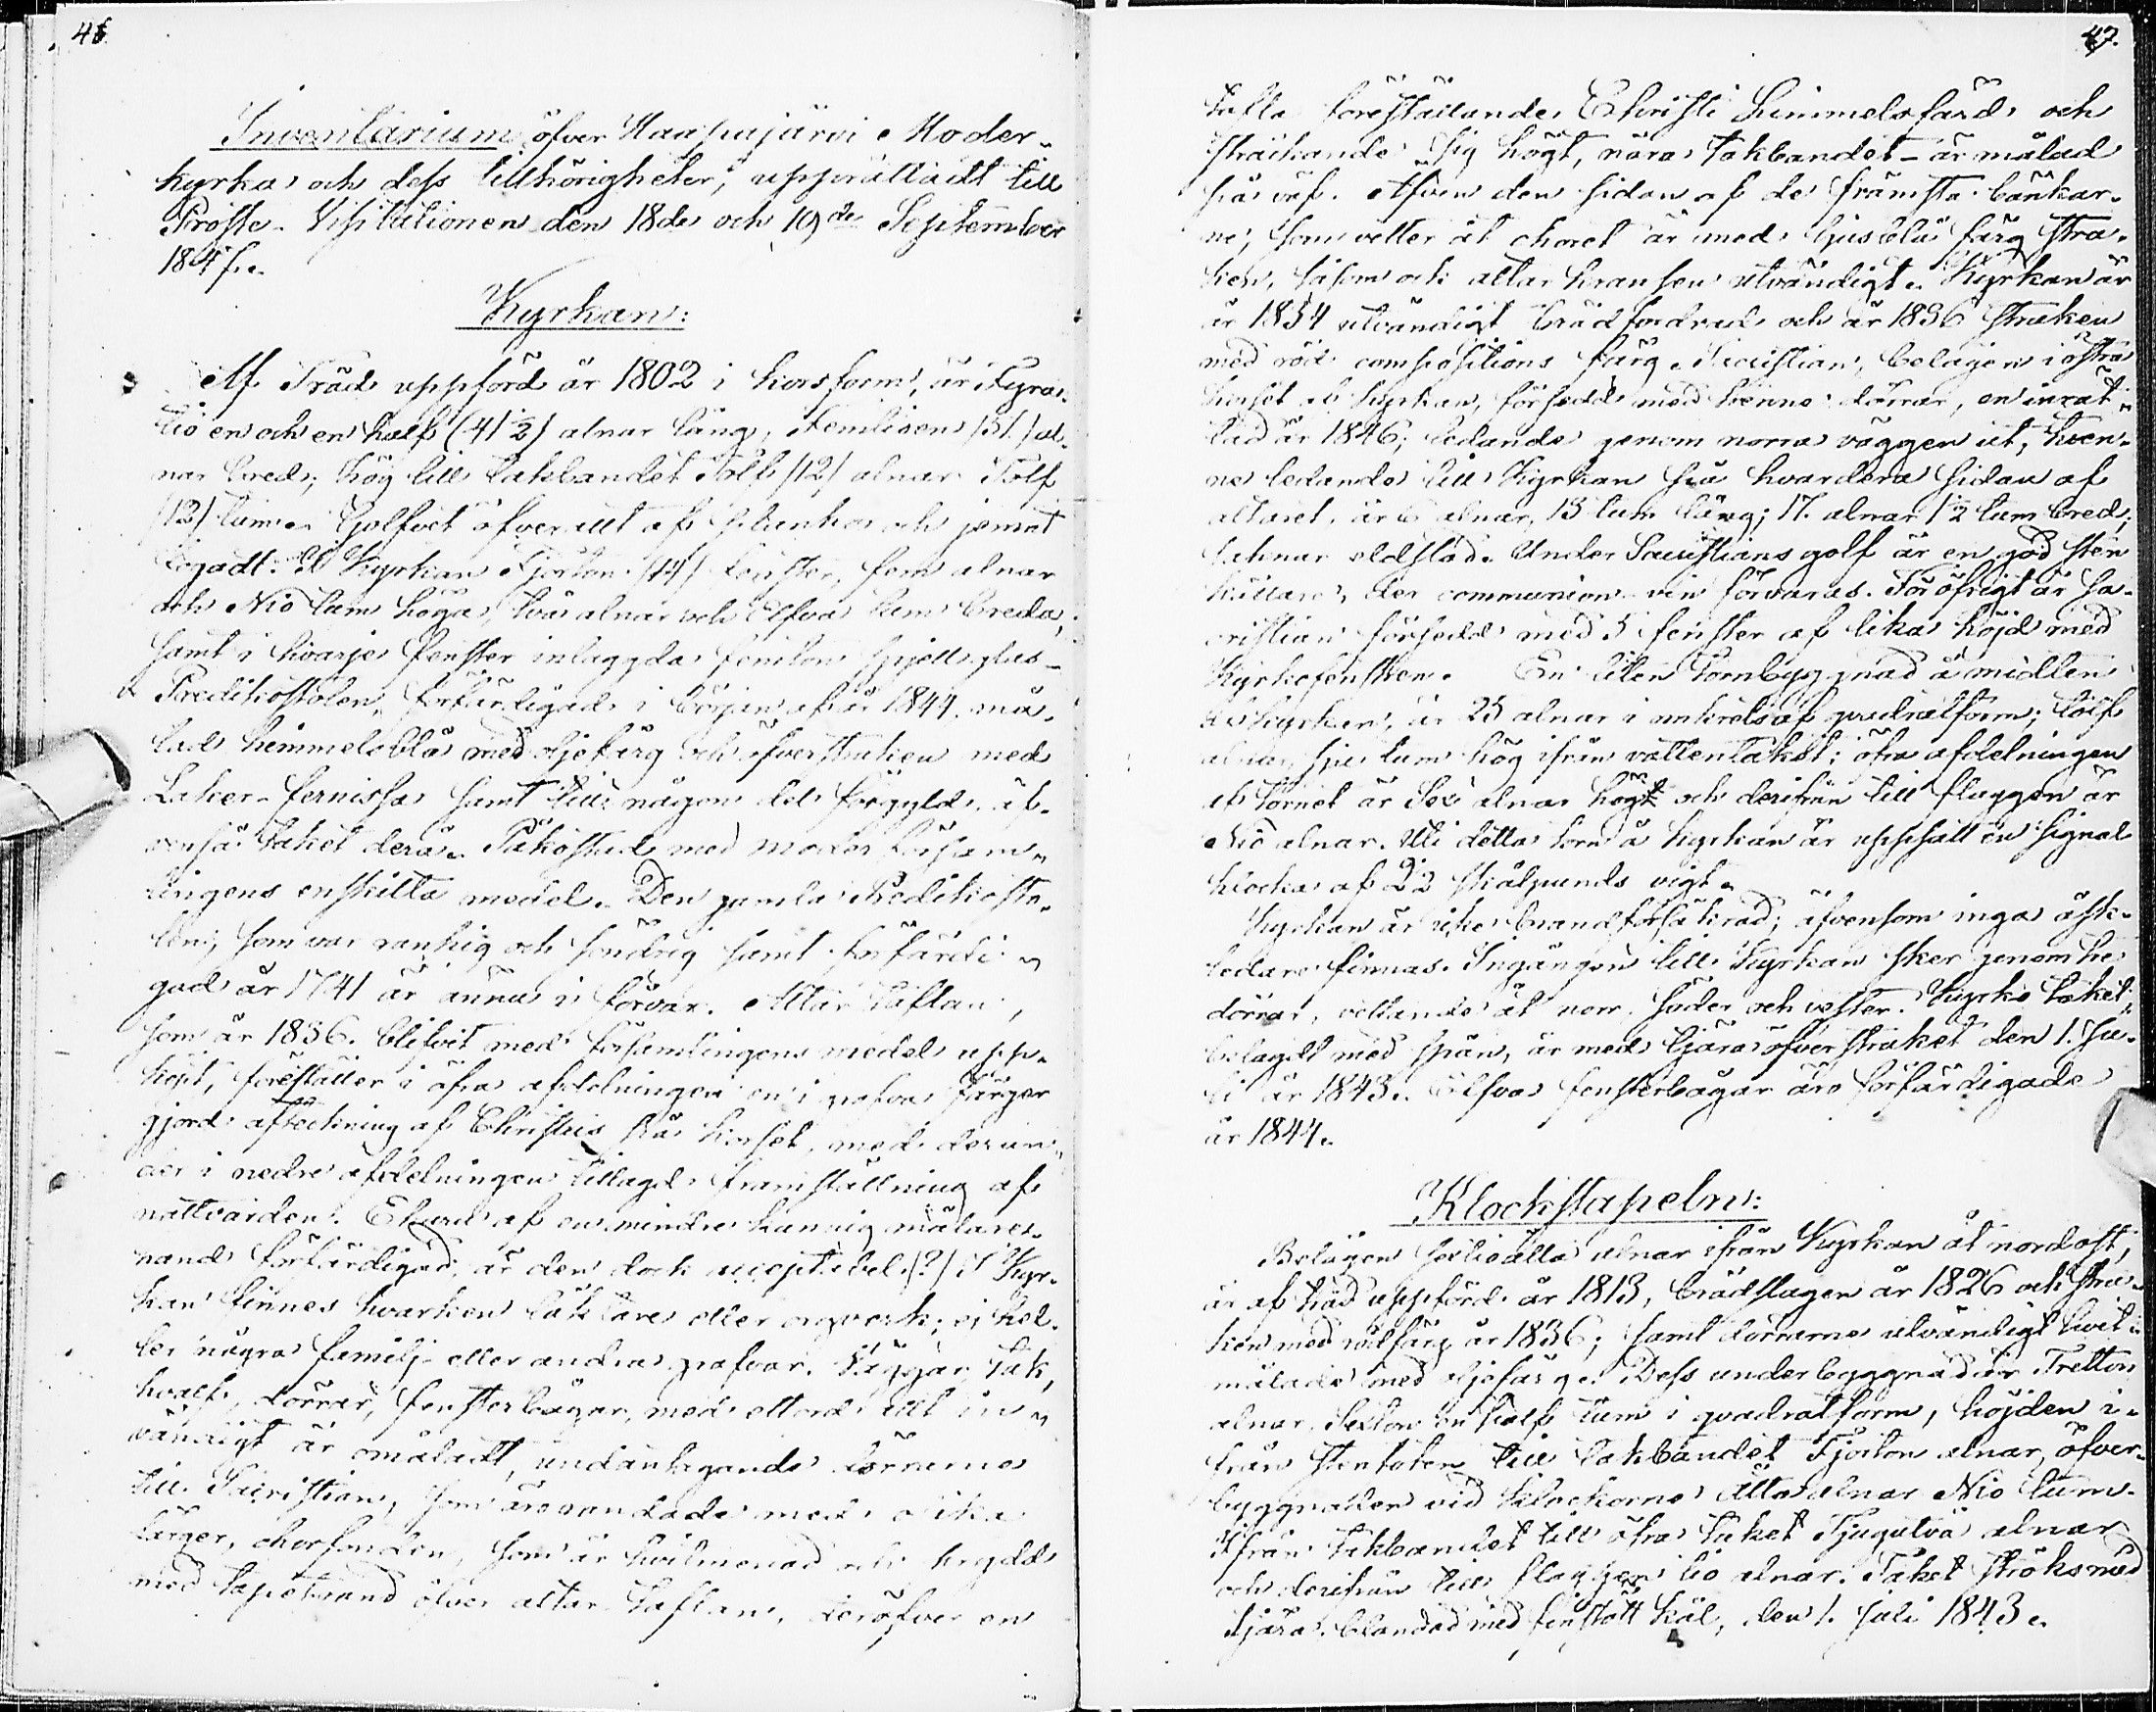 46.
Inventarium öfver Haapajärvi Moder-
kyrka och dess tillhörigheter, upprättadt till
Prosts-Visitationen den 18de och 19de September
184
Kyrkan:
Af Träd uppförd år 1802 i korsform, är Fyra-
tio en och en half (41½) alnar lång, Femtioen /51/ al-
nar bred; hög till takbandet Tolf /12/ alnar Tolf
/12/ tum. Golfvet öfverallt af plankor och jemnt
lagadt. I Kyrkan Fjorton /14/ fönster, fem alnar
och Nio tum höga, två alnar och Elfva tum breda,
samt i hvarje fenster inlaggda femton spjell glas-
Predikostolen, förfärdigad i början af år 1844, må-
lad himmelsblå med oljefärg och öfverstruken med
Laker-fernissa samt till någon del förgyld, äf-
venså taket derå. Påkostad med moder försam-
lingens enskilta medel. Den gamla Predikosto-
len, som var rankig och söndrig samt förfärdi-
gad år 1741 är ännu i förvar. Altar taflan,
som år 1836 blifvit med församlingens medel upp-
köpt, föreställer i öfra afdelningen en i grofva färger
gjord afteckning af Christus på korset, med derun-
der i nedre afdelningen tillagd framställning af
nattvarden. Ehuru af en mindre kunnig målares
hand förfärdigad, är den dock acceptabel (?) I Kyr-
kan finnes hvarken läktare eller orgverk; ej hel-
ler några familj- eller andra grafvar. Väggar, tak,
hvalf, dörrar, fensterbågar, med ett ord allt in-
vändigt är omåladt, undantagande dörrarne
till Sacristian, som äro randade med olika
färger, chorfonden, som är hvitmenad och prydd
med tapetrand öfver altar-Taflan, deröfver en
47.
tafla föreställande Christi himmelsfärd och
sträckande sig högt, nära takbandet - är målad
på väf. Äfven den sidan af de främsta bänkar-
ne, som vetter åt choret är med ljusblå färg stru-
ken, såsom ock altar kransen utvändigt. Kyrkan är
år 1834 utvändigt brädfordrad och år 1836 struken
med röd compositions färg. Sacristian, belägen i östra
korset af Kyrkan, försedd med trenne dörrar, en inrät-
tad år 1846; ledande genom norra väggen ut, tven-
ne ledande till Kyrkan på hvardera sidan af
altaret, är 6 alnar, 13 tum lång; 17 alnar 1½ tum bred;
saknar eldstad. Under Sacristians golf är en god sten
källare, der communion-vin förvaras. För öfrigt är Sa-
cristian försedd med 5 fenster af lika höjd med
Kyrkofenstren. En liten tornbyggnad å midten
af kyrkan, är 25 alnar i omkrets af quadratform; tolf
alnar, sju tum hög ifrån vattentaket; öfra afdelningen
af tornet är Sex alnar högt och derifrån till flaggan är
Nio alnar. Uti detta torn å Kyrkan är uppsatt en signal
klocka af 22 skålpunds vigt.
Kyrkan är icke brandförsäkrad; äfvensom inga åsk-
ledare finnas. Ingången till Kyrkan sker genom tre
dörrar, vettande åt norr, söder och vester. Kyrko taket
belagdt med spån, är med tjära öfverstruket den 1. Ju-
li år 1843. Elfva fensterbågar äro förfärdigade
år 1844.
Klockstapeln:
Belägen sextioåtta alnar ifrån Kyrkan åt nordost,
är af träd uppförd år 1813, brädslagen år 1826 och stru-
ken med rödfärg år 1836; samt dörrarne utvändigt hvit-
målade med oljefärg. Dess underbyggnad är Tretton
alnar Sexton en half tum i qvadratform, höjden i-
från stenfoten till takbandet Fjorton alnar, öfver-
byggnaden vid klockorne Åtta alnar Nio tum.
Ifrån takbandet till öfra taket Tjugutvå alnar
och derifrån till flaggan tio alnar. Taket ströks med
tjära, blandad med finstött kål, den 1. Juli 1843.